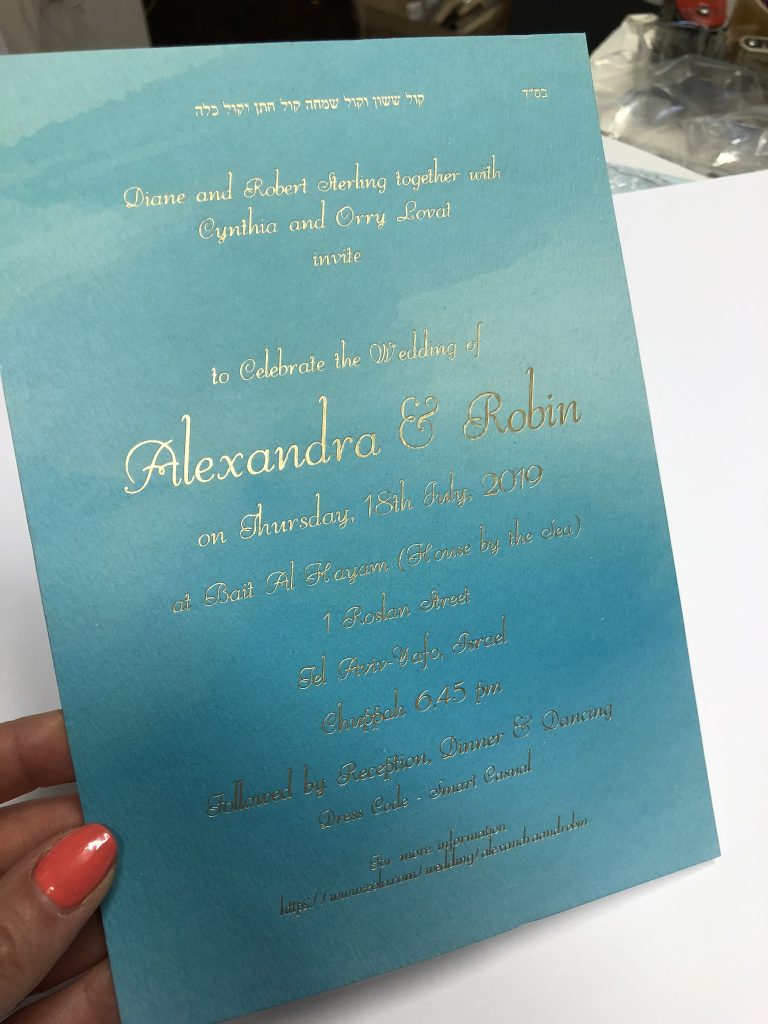 בס״ד
קול ששון וקול שמחה קול חתן וקול כלה
Diane and Robert Sterling together with
Cynthia and Orry Lovat
invite
to Celebrate the Wedding of
Alexandra & Robin
on Thursday, 18th July, 2019
at Bait Al Hayam (House by the Sea)
1 Roslan Street
Tel Aviv-Yafo, Israel
Chuppah 6.45 pm
Followed by Reception, Dinner & Dancing
Dress Code - Smart Casual
For more information
https://www.zola.com/wedding/alexandraandrobin